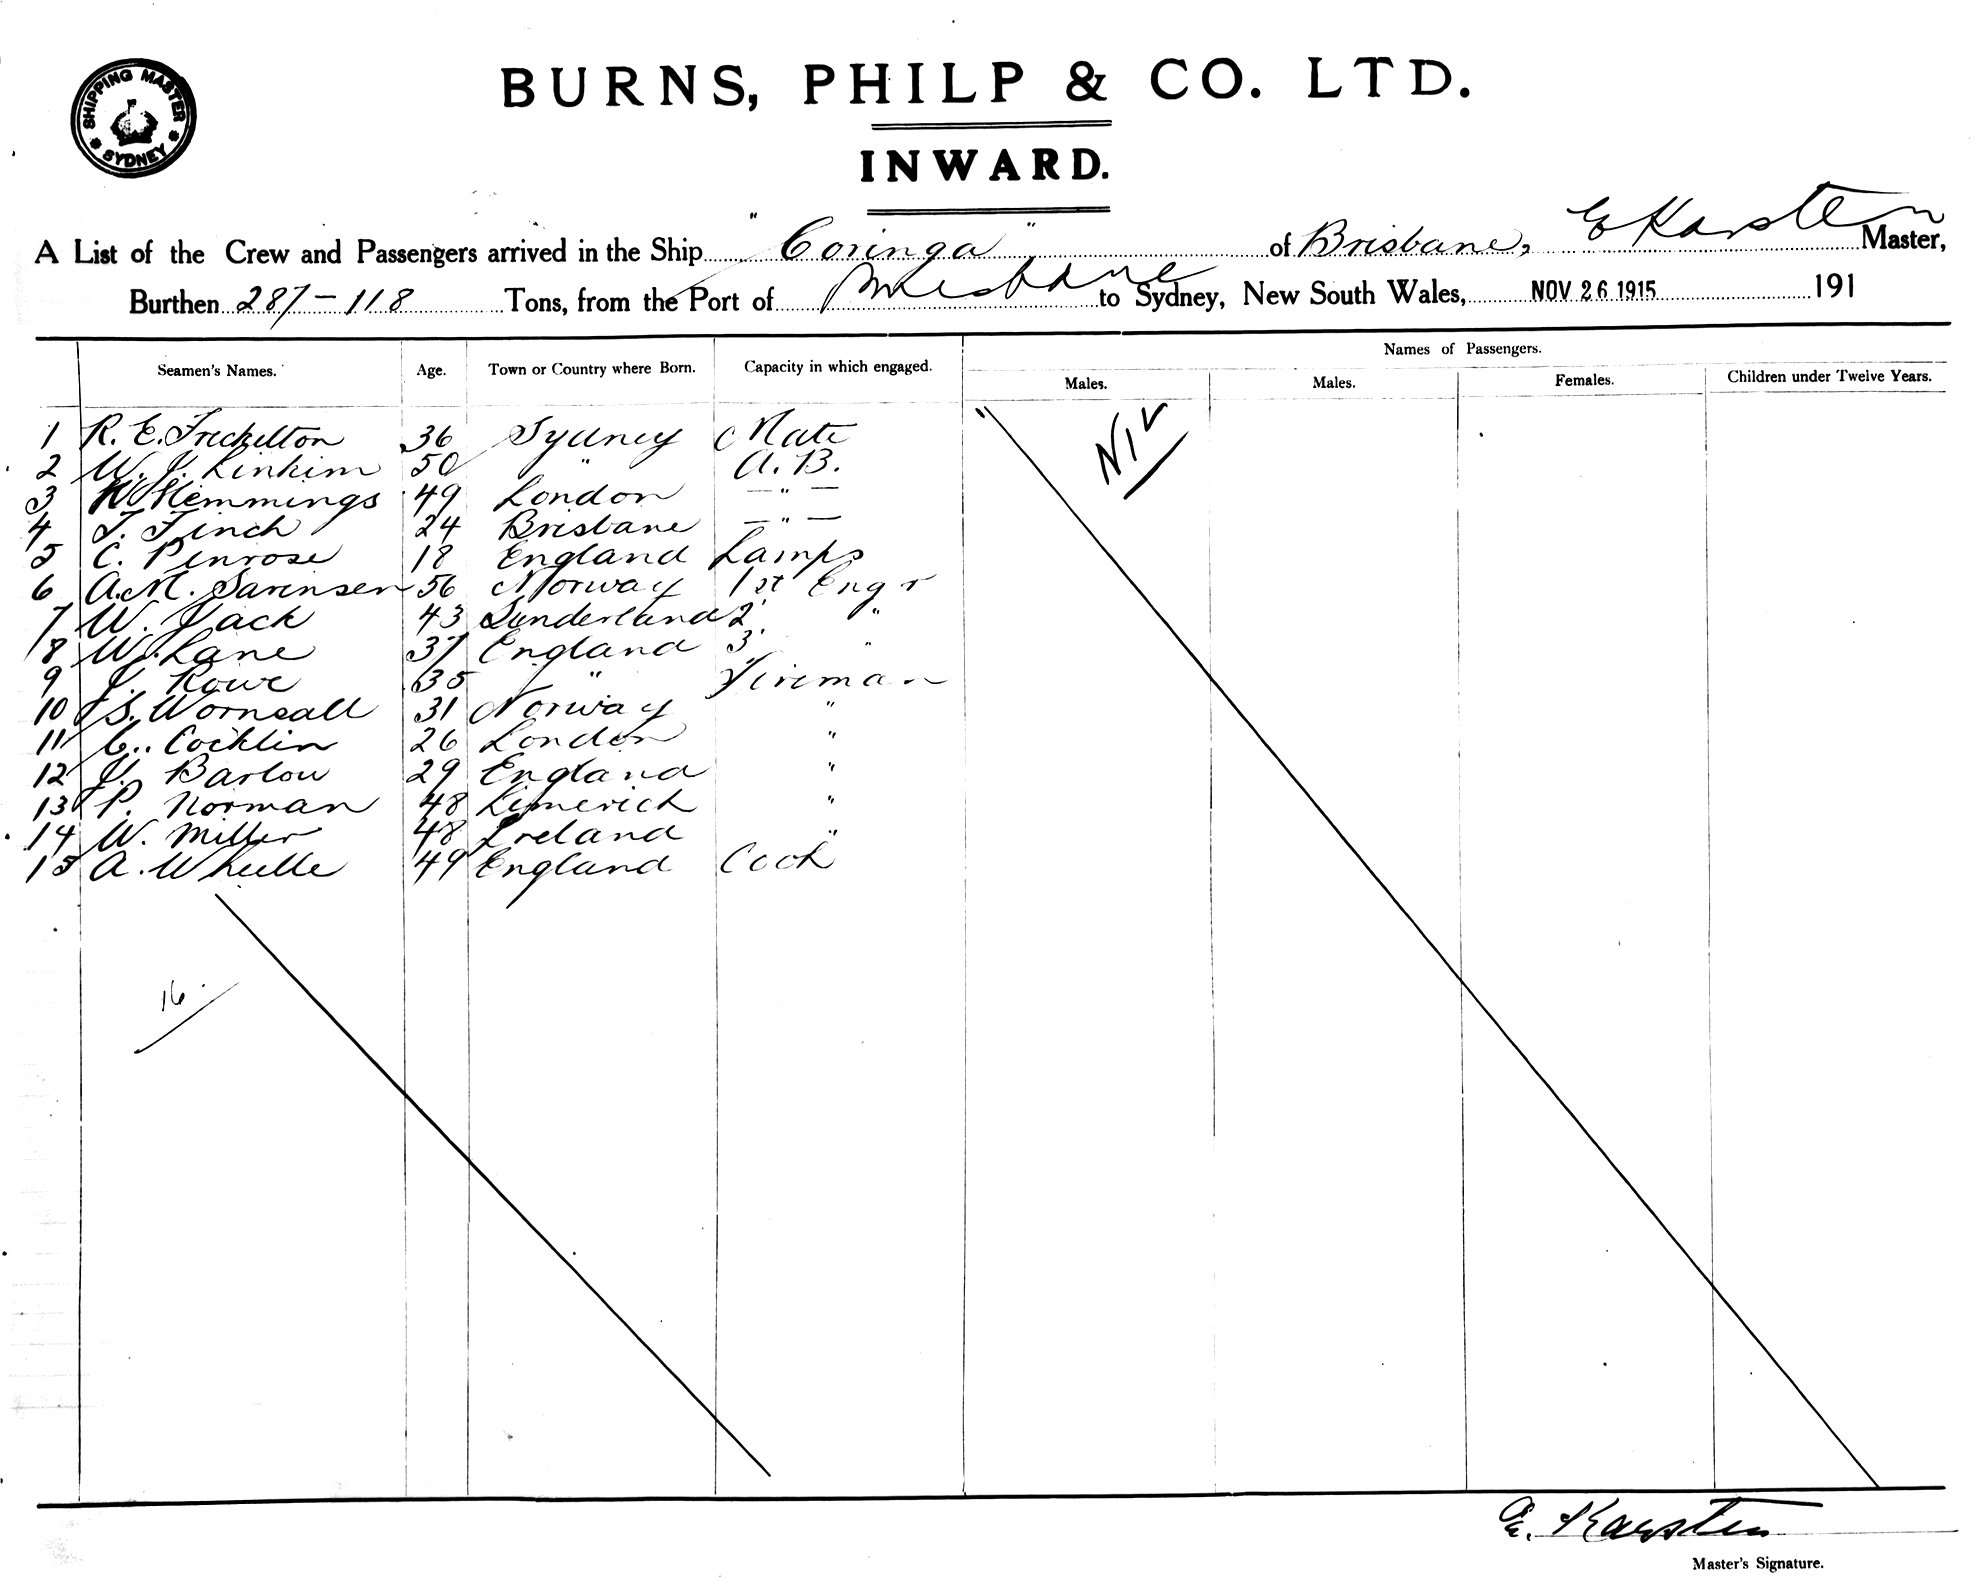 SHIPPING MASTER
SYDNEY
BURNS, PHILP & CO. LTD.
INWARD.
A List of the Crew and Passengers arrived in the Ship "Coringa" of Brisbane, E Karsten Master,
Burthen 287-118 Tons, from the Port of Brisbane to Sydney, New South Wales, NOV 26 1915 191
Names of Passengers.
Seamen's Names. Age. Town or Country where Born. Capacity in which engaged. Males. Males. Females. Children under Twelve Years.
NIL
1 R. E. Freckelton 36 Sydney Mate
2 W. J. Linkim 50 " A. B.
3 Hemmings 49 London — " —
4 T. Finch 24 Brisbane — " —
5 C. Penrose 18 England Lamps
6 A. M. Sarensen 56 Norway 1st Engr
7 W. Jack 43 Sunderland 2 "
8 W. Lane 37 England 3 "
9 J. Rowe 35 " Fireman
10 S. Wornsall 31 Norway "
11 C. Cocklin 26 London "
12 J. Barlow 29 England "
13 P. Norman 48 Limerick "
14 W. Miller 48 Ireland "
15 A. Wheelle 49 England Cook
16
E. Karsten
Master's Signature.